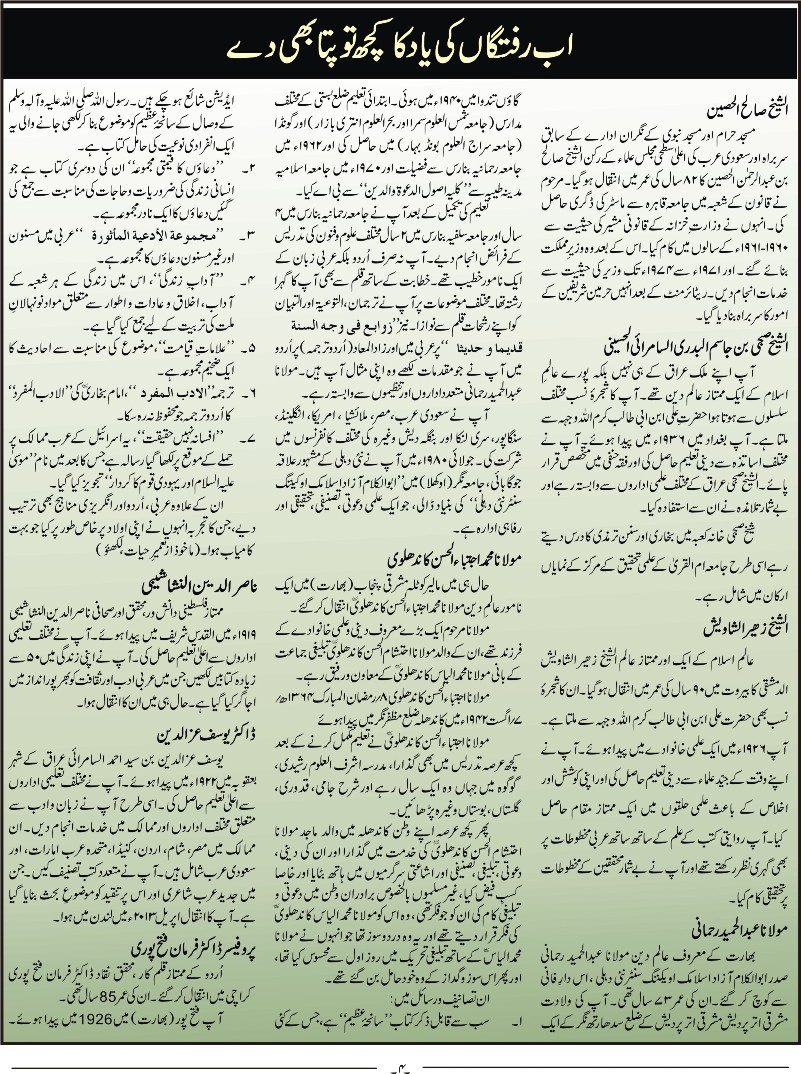 اب رفتگاں کی یاد کا کچھ تو پتا بھی دے
الشیخ صالح الحصین
مسجد حرام اور مسجد نبوی کے نگران ادارے کے سابق
سربراہ اور سعودی عرب کی اعلیٰ سطحی مجلس علماء کے رکن الشیخ صالح
بن عبدالرحمٰن الحصین کا ۸۲ سال کی عمر میں انتقال ہو گیا۔ مرحوم
نے قانون کے شعبہ میں جامعہ قاہرہ سے ماسٹر کی ڈگری حاصل
کی۔ انہوں نے وزارتِ خزانہ کے قانونی مشیر کی حیثیت سے
۱۹۶۰-۱۹۶۱ء کے سالوں میں کام کیا۔ اس کے بعد وہ وزیر مملکت
بنائے گئے۔ اور ۱۹۷۱ء سے ۱۹۷۴ء تک وزیر کی حیثیت سے
خدمات انجام دیں۔ ریٹائرمنٹ کے بعد انہیں حرمین شریفین کے
امور کا سربراہ بنا دیا گیا۔
الشیخ صبحی بن جاسم البدری السامرائی الحسینی
آپ اپنے ملک عراق کے ہی نہیں بلکہ پورے عالم
اسلام کے ایک ممتاز عالم دین تھے۔ آپ کا شجرۂ نسب مختلف
سلسلوں سے ہوتا ہوا حضرت علی ابن ابی طالب کرم اللہ وجہہ سے
ملتا ہے۔ آپ بغداد میں ۱۹۳۶ء میں پیدا ہوئے۔ آپ نے
مختلف اساتذہ سے دینی تعلیم حاصل کی اور فقہ حنفی میں متخصص قرار
پائے۔ الشیخ صبحی عراق کے مختلف علمی اداروں سے وابستہ رہے اور
بے شمار تلامذہ نے ان سے استفادہ کیا۔
شیخ صبحی خانہ کعبہ میں بخاری اور سنن ترمذی کا درس دیتے
رہے اسی طرح جامعہ ام القریٰ کے علمی تحقیق کے مرکز کے نمایاں
ارکان میں شامل رہے۔
الشیخ زھیر الشاویش
عالم اسلام کے ایک اور ممتاز عالم الشیخ زھیر الشاویش
الدمشقی کا بیروت میں ۹۰ سال کی عمر میں انتقال ہو گیا۔ ان کا شجرۂ
نسب بھی حضرت علی ابن ابی طالب کرم اللہ وجہہ سے ملتا ہے۔
آپ ۱۹۲۶ء میں ایک علمی خانوادے میں پیدا ہوئے۔ آپ نے
اپنے وقت کے جید علماء سے دینی تعلیم حاصل کی اور اپنی کوشش اور
اخلاص کے باعث علمی حلقوں میں ایک ممتاز مقام حاصل
کیا۔ آپ روایتی کتب کے علم کے ساتھ ساتھ عربی مخطوطات پر
بھی گہری نظر رکھتے تھے اور آپ نے بے شمار محققین کے مخطوطات
پر تحقیقی کام کیا۔
مولانا عبدالحمید رحمانی
بھارت کے معروف عالم دین مولانا عبدالحمید رحمانی
صدر ابوالکلام آزاد اسلامک اویکننگ سنٹر نئی دہلی، اس دارِ فانی
سے کوچ کر گئے۔ ان کی عمر ۷۳ سال تھی۔ آپ کی ولادت
مشرقی اتر پردیش مشرقی اتر پردیش کے ضلع سدھارتھ نگر کے ایک
گاؤں تندوا میں ۱۹۴۰ء میں ہوئی۔ ابتدائی تعلیم ضلع بستی کے مختلف
مدارس (جامعہ شمس العلوم سمرا اور بحر العلوم انتری بازار) اور گونڈا
(جامعہ سراج العلوم بونڈیہار) میں حاصل کی اور ۱۹۶۲ء میں
جامعہ رحمانیہ بنارس سے فضیلت اور ۱۹۷۰ء میں جامعہ اسلامیہ
مدینہ طیبہ سے "کلیہ اصول الدعوۃ والدین" سے بی اے کیا۔
تعلیم کی تکمیل کے بعد آپ نے جامعہ رحمانیہ بنارس میں ۴
سال اور جامعہ سلفیہ بنارس میں ۲ سال مختلف علوم و فنون کی تدریس
کے فرائض انجام دیے۔ آپ نہ صرف اُردو بلکہ عربی زبان کے
ایک نامور خطیب تھے۔ خطابت کے ساتھ قلم سے بھی آپ کا گہرا
رشتہ تھا۔ مختلف موضوعات پر آپ نے ترجمان، التوعیۃ اور التبیان
کو اپنے رشحات قلم سے نوازا۔ نیز "زوابع فی وجہ السنة
قدیما و حدیثا" پر عربی میں اور زاد المعاد (اُردو ترجمہ) پر اُردو
میں آپ نے جو مقدمات لکھے وہ اپنی مثال آپ ہیں۔ مولانا
عبدالحمید رحمانی متعدد اداروں اور تنظیموں سے وابستہ رہے۔
آپ نے سعودی عرب، مصر، ملائشیا، امریکا، انگلینڈ،
سنگاپور، سری لنکا اور بنگلہ دیش وغیرہ کی مختلف کانفرنسوں میں
شرکت کی۔ جولائی ۱۹۸۰ء میں آپ نے نئی دہلی کے مشہور علاقہ
جوگابائی، جامعہ نگر (اوکھلا) میں "ابوالکلام آزاد اسلامک اویکننگ
سنٹر نئی دہلی" کی بنیاد ڈالی، جو ایک علمی دعوتی، تصنیفی، تحقیقی اور
رفاہی ادارہ ہے۔
مولانا محمد اجتباء الحسن کاندھلوی
حال ہی میں مالیر کوٹلہ مشرقی پنجاب (بھارت) میں ایک
نامور عالم دین مولانا محمد اجتباء الحسن کاندھلویؒ انتقال کر گئے۔
مولانا مرحوم ایک بڑے معروف دینی و علمی خانوادے کے
فرزند تھے، ان کے والد مولانا احتشام الحسن کاندھلویؒ تبلیغی جماعت
کے بانی مولانا محمد الیاس کاندھلویؒ کے معاون و رفیق رہے۔
مولانا اجتباء الحسن کاندھلویؒ ۸/رمضان المبارک ۱۳۶۴ھ/
۷/اگست ۱۹۴۲ء میں کاندھلہ ضلع مظفر نگر میں پیدا ہوئے
مولانا اجتباء الحسن کاندھلویؒ نے تعلیم مکمل کرنے کے بعد
کچھ عرصہ تدریس میں بھی گذارا، مدرسہ اشرف العلوم رشیدی،
گنگوہ میں جہاں وہ ایک سال رہے اور شرح جامی، قدوری،
گلستاں، بوستاں وغیرہ پڑھائیں۔
پھر کچھ عرصہ اپنے وطن کاندھلہ میں والد ماجد مولانا
احتشام الحسن کاندھلویؒ کی خدمت میں گذارا اور ان کی دینی،
دعوتی، تبلیغی، تصنیفی اور اشاعتی سرگرمیوں میں ہاتھ بٹایا اور خاصا
کسب فیض کیا، غیر مسلموں بالخصوص برادرانِ وطن میں دعوتی و
تبلیغی کام کی ان کو جو فکر تھی، وہ اس کو مولانا محمد الیاس کاندھلویؒ
کی فکر قرار دیتے تھے اور یہ وہ درد و سوز تھا جو انہوں نے مولانا
محمد الیاسؒ کے ساتھ تبلیغی تحریک میں روزِ اول سے محسوس کیا تھا،
اور پھر اس سوز و گداز کے وہ خود حامل بن گئے تھے۔
ان تصانیف و رسائل میں:
۱۔ سب سے قابل ذکر کتاب "سانحۂ عظیم" ہے، جس کے کئی
ایڈیشن شائع ہو چکے ہیں۔ رسول اللہ صلی اللہ علیہ وآلہ وسلم
کے وصال کے سانحۂ عظیم کو موضوع بنا کر لکھی جانے والی یہ
ایک انفرادی نوعیت کی حامل کتاب ہے۔
۲۔ "دعاؤں کا قیمتی مجموعہ" ان کی دوسری کتاب ہے جو
انسانی زندگی کی ضروریات و حاجات کی مناسبت سے جمع کی
گئیں دعاؤں کا ایک نادر مجموعہ ہے۔
۳۔ "مجموعة الأدعیة المأثورة" عربی میں مسنون
اور غیر مسنون دعاؤں کا مجموعہ ہے۔
۴۔ "آدابِ زندگی"، اس میں زندگی کے ہر شعبہ کے
آداب، اخلاق و عادات و اطوار سے متعلق مواد نونہالانِ
ملت کی تربیت کے لیے جمع کیا گیا ہے۔
۵۔ "علاماتِ قیامت"، موضوع کی مناسبت سے احادیث کا
ایک ضخیم مجموعہ ہے۔
۶۔ ترجمہ "الادب المفرد"، امام بخاریؒ کی "الادب المفرد"
کا اُردو ترجمہ جو محفوظ نہ رہ سکا۔
۷۔ "افسانہ نہیں حقیقت"، یہ اسرائیل کے عرب ممالک پر
حملے کے موقع پر لکھا گیا رسالہ ہے جس کا بعد میں نام "موسیٰ
علیہ السلام اور یہودی قوم کا کردار" تجویز کیا گیا۔
ان کے علاوہ عربی، اُردو اور انگریزی مناہج بھی ترتیب
دیے، جن کا تجربہ انہوں نے اپنی اولاد پر خاص طور پر کیا جو بہت
کامیاب ہوا۔ (ماخوذ از تعمیر حیات، لکھنؤ)
ناصر الدین النشاشیبی
ممتاز فلسطینی دانش ور، محقق اور صحافی ناصر الدین النشاشیبی
۱۹۱۹ء میں القدس شریف میں پیدا ہوئے۔ آپ نے مختلف تعلیمی
اداروں سے اعلیٰ تعلیم حاصل کی۔ آپ نے اپنی زندگی میں ۵۰ سے
زیادہ کتابیں لکھیں جن میں عربی ادب اور ثقافت کو بھرپور انداز میں
اجاگر کیا گیا ہے۔ حال ہی میں ان کا انتقال ہوا۔
ڈاکٹر یوسف عزالدین
یوسف عزالدین بن سید احمد السامرائی عراق کے شہر
بعقوبہ میں ۱۹۲۲ء میں پیدا ہوئے۔ آپ نے مختلف تعلیمی اداروں
سے اعلیٰ تعلیم حاصل کی۔ اسی طرح آپ نے زبان و ادب سے
متعلق مختلف اداروں اور ممالک میں خدمات انجام دیں۔ ان
ممالک میں مصر، شام، اردن، کنیڈا، متحدہ عرب امارات، اور
سعودی عرب شامل ہیں۔ آپ نے متعدد کتب تصنیف کیں۔ جن
میں جدید عرب شاعری اور اس پر تنقید کو موضوع بحث بنایا گیا
ہے۔ آپ کا انتقال اپریل ۲۰۱۳ء میں لندن میں ہوا۔
پروفیسر ڈاکٹر فرمان فتح پوری
اُردو کے ممتاز قلم کار، محقق نقاد ڈاکٹر فرمان فتح پوری
کراچی میں انتقال کر گئے۔ ان کی عمر 85 سال تھی۔
آپ فتح پور (بھارت) میں 1926 میں پیدا ہوئے۔
۔۴۔